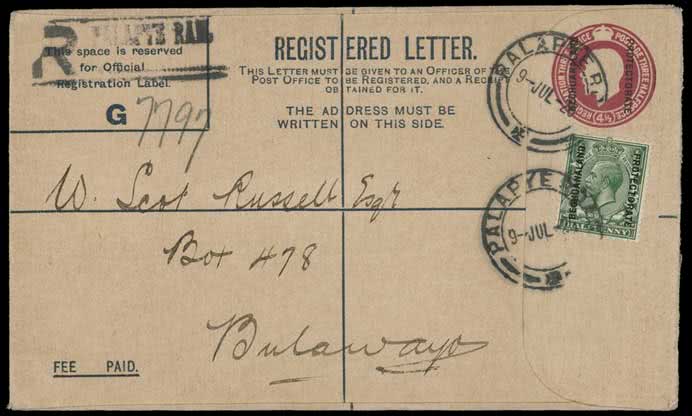 R PALAPYE RAM.
This space is reserved
for Official
Registration Label.
G
7797
REGISTERED LETTER.
THIS LETTER MUST BE GIVEN TO AN OFFICER OF THE
POST OFFICE TO BE REGISTERED, AND A RECEIPT
OBTAINED FOR IT.
THE ADDRESS MUST BE
WRITTEN ON THIS SIDE.
PALAPYE R
9-JUL-26
POSTAGE THREE HALFPENCE
(4½)
PROTECTORATE
BECHUANALAND
PROTECTORATE
HALFPENNY
PALAPYE R
9-JUL-
W. Scot Russell Esqr
Box 478
Bulawayo
FEE PAID.